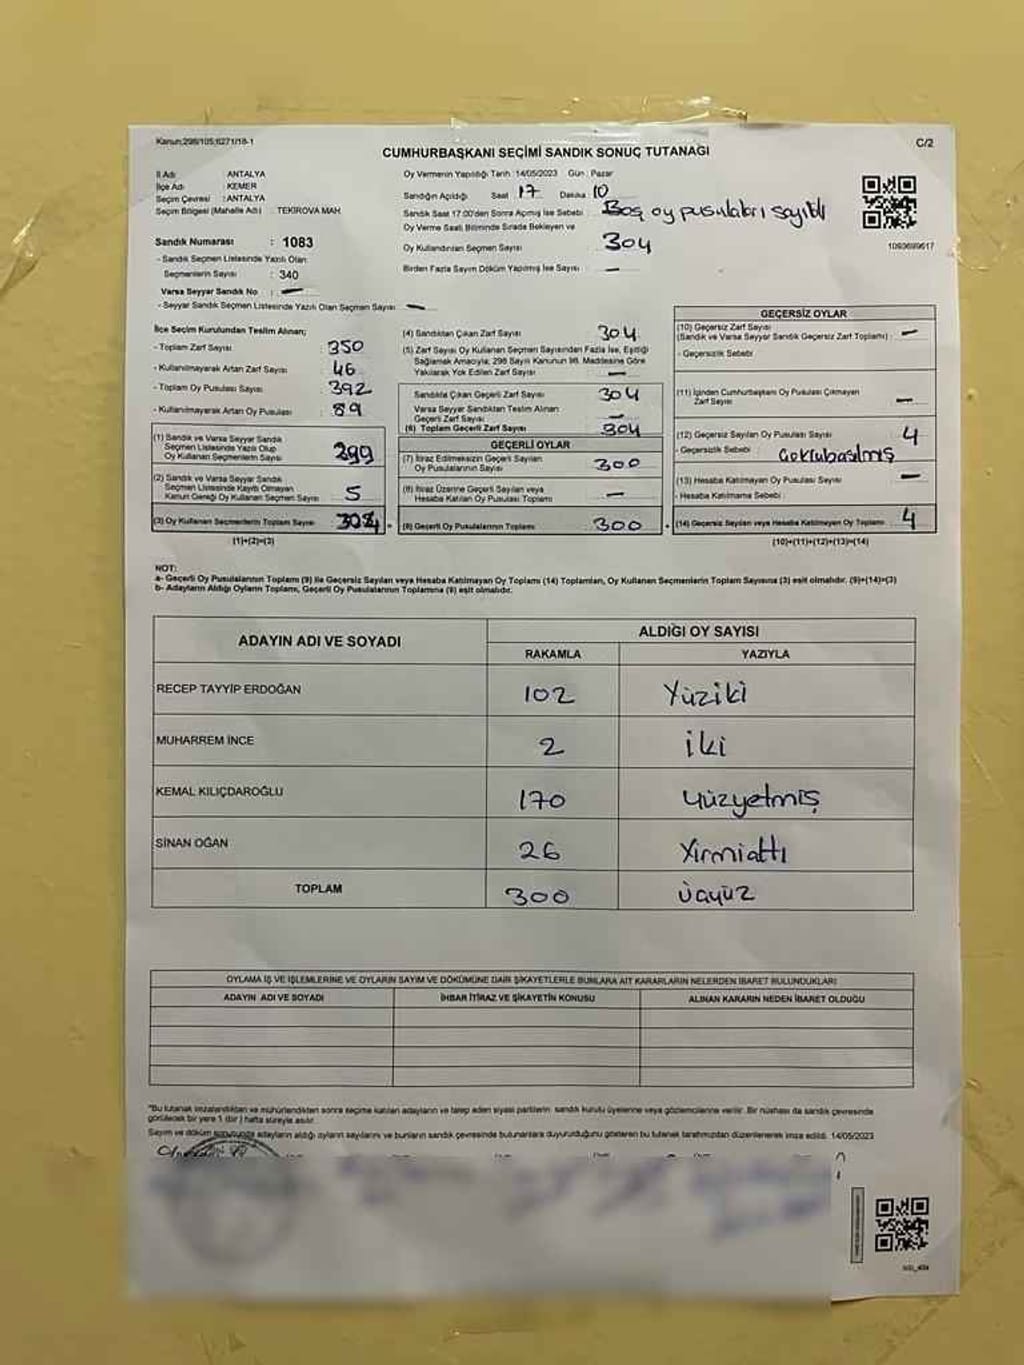 Kanun:298/105;6271/18-1
C/2
CUMHURBAŞKANI SEÇİMİ SANDIK SONUÇ TUTANAĞI
İl Adı : ANTALYA
İlçe Adı : KEMER
Seçim Çevresi : ANTALYA
Seçim Bölgesi (Mahalle Adı) : TEKİROVA MAH.
Sandık Numarası : 1083
- Sandık Seçmen Listesinde Yazılı Olan
Seçmenlerin Sayısı : 340
Varsa Seyyar Sandık No : —
- Seyyar Sandık Seçmen Listesinde Yazılı Olan Seçmen Sayısı : —
Oy Vermenin Yapıldığı Tarih : 14/05/2023 Gün : Pazar
Sandığın Açıldığı Saat 17 Dakika 10
Sandık Saat 17:00'den Sonra Açılmış İse Sebebi : Boş oy pusulaları sayıldı
Oy Verme Saati Bitiminde Sırada Bekleyen ve
Oy Kullandırılan Seçmen Sayısı : 304
Birden Fazla Sayım Döküm Yapılmış İse Sayısı : —
1093699617
İlçe Seçim Kurulundan Teslim Alınan;
- Toplam Zarf Sayısı : 350
- Kullanılmayarak Artan Zarf Sayısı : 46
- Toplam Oy Pusulası Sayısı : 392
- Kullanılmayarak Artan Oy Pusulası : 89
(1) Sandık ve Varsa Seyyar Sandık
Seçmen Listesinde Yazılı Olup
Oy Kullanan Seçmenlerin Sayısı : 299
(2) Sandık ve Varsa Seyyar Sandık
Seçmen Listesinde Kayıtlı Olmayan
Kanun Gereği Oy Kullanan Seçmen Sayısı : 5
(3) Oy Kullanan Seçmenlerin Toplam Sayısı : 304
(1)+(2)=(3)
(4) Sandıktan Çıkan Zarf Sayısı : 304
(5) Zarf Sayısı Oy Kullanan Seçmen Sayısından Fazla İse, Eşitliği
Sağlamak Amacıyla; 298 Sayılı Kanunun 98. Maddesine Göre
Yakılarak Yok Edilen Zarf Sayısı : —
Sandıkta Çıkan Geçerli Zarf Sayısı : 304
Varsa Seyyar Sandıktan Teslim Alınan
Geçerli Zarf Sayısı : —
(6) Toplam Geçerli Zarf Sayısı : 304
GEÇERLİ OYLAR
(7) İtiraz Edilmeksizin Geçerli Sayılan
Oy Pusulalarının Sayısı : 300
(8) İtiraz Üzerine Geçerli Sayılan veya
Hesaba Katılan Oy Pusulası Toplamı : —
(9) Geçerli Oy Pusulalarının Toplamı : 300
GEÇERSİZ OYLAR
(10) Geçersiz Zarf Sayısı
(Sandık ve Varsa Seyyar Sandık Geçersiz Zarf Toplamı) : —
- Geçersizlik Sebebi :
(11) İçinden Cumhurbaşkanı Oy Pusulası Çıkmayan
Zarf Sayısı : —
(12) Geçersiz Sayılan Oy Pusulası Sayısı : 4
- Geçersizlik Sebebi : Çoklu basılmış
(13) Hesaba Katılmayan Oy Pusulası Sayısı : —
- Hesaba Katılmama Sebebi :
(14) Geçersiz Sayılan veya Hesaba Katılmayan Oy Toplamı : 4
(10)+(11)+(12)+(13)=(14)
NOT:
a- Geçerli Oy Pusulalarının Toplamı (9) ile Geçersiz Sayılan veya Hesaba Katılmayan Oy Toplamı (14) Toplamları, Oy Kullanan Seçmenlerin Toplam Sayısına (3) eşit olmalıdır. (9)+(14)=(3)
b- Adayların Aldığı Oyların Toplamı, Geçerli Oy Pusulalarının Toplamına (9) eşit olmalıdır.
ADAYIN ADI VE SOYADI
ALDIĞI OY SAYISI
RAKAMLA YAZIYLA
RECEP TAYYİP ERDOĞAN 102 Yüziki
MUHARREM İNCE 2 iki
KEMAL KILIÇDAROĞLU 170 yüzyetmiş
SİNAN OĞAN 26 Yirmialtı
TOPLAM 300 üçyüz
OYLAMA İŞ VE İŞLEMLERİNE VE OYLARIN SAYIM VE DÖKÜMÜNE DAİR ŞİKAYETLERLE BUNLARA AİT KARARLARIN NELERDEN İBARET BULUNDUKLARI
ADAYIN ADI VE SOYADI İHBAR İTİRAZ VE ŞİKAYETİN KONUSU ALINAN KARARIN NEDEN İBARET OLDUĞU
"Bu tutanak imzalandıktan ve mühürlendikten sonra seçime katılan adayların ve talep eden siyasi partilerin sandık kurulu üyelerine veya gözlemcilerine verilir. Bir nüshası da sandık çevresinde
görülecek bir yere 1 (bir) hafta süreyle asılır.
Sayım ve döküm sonucunda adayların aldığı oyların sayılarını ve bunların sandık çevresinde bulunanlara duyurulduğunu gösteren bu tutanak tarafımızdan düzenlenerek imza edildi. 14/05/2023